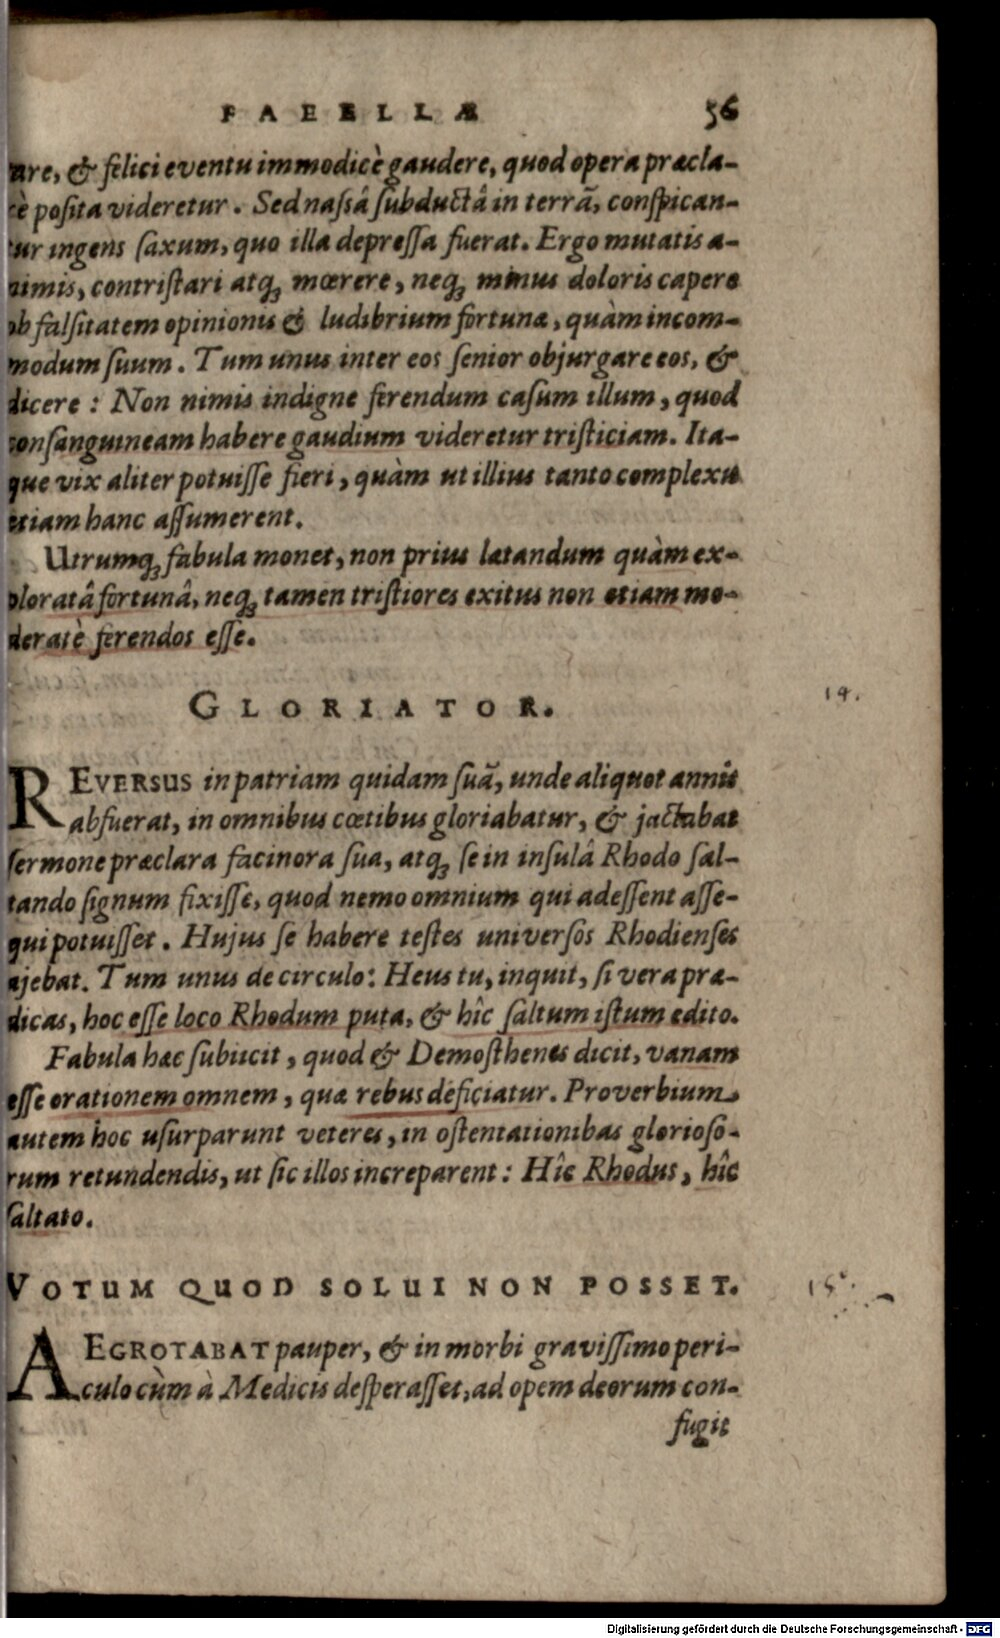 FAEELLÆ 56
are, & felici eventu immodicè gaudere, quod opera præcla-
rè posita videretur. Sed nassâ subductâ in terrā, conspican-
tur ingens saxum, quo illa depressa fuerat. Ergo mutatis a-
nimis, contristari atq; mœrere, neq; minus doloris capere
ob falsitatem opinionis & ludibrium fortunæ, quàm incom-
modum suum. Tum unus inter eos senior objurgare eos, &
dicere: Non nimis indigne ferendum casum illum, quod
consanguineam habere gaudium videretur tristiciam. Ita-
que vix aliter potuisse fieri, quàm ut illius tanto complexu
etiam hanc assumerent.
Utrumq; fabula monet, non prius lætandum quàm ex-
ploratâ fortunâ, neq; tamen tristiores exitus non etiam mo-
deratè ferendos esse.
GLORIATOR.
14.
REVERSUS in patriam quidam suā, unde aliquot annis
abfuerat, in omnibus cœtibus gloriabatur, & jactabat
sermone præclara facinora sua, atq; se in insulâ Rhodo sal-
tando signum fixisse, quod nemo omnium qui adessent asse-
qui potuisset. Hujus se habere testes universos Rhodienses
ajebat. Tum unus de circulo: Heus tu, inquit, si vera præ-
dicas, hoc esse loco Rhodum puta, & hîc saltum istum edito.
Fabula hæc subiicit, quod & Demosthenes dicit, vanam
esse orationem omnem, quæ rebus deficiatur. Proverbium
autem hoc usurparunt veteres, in ostentationibus glorioso-
rum retundendis, ut sic illos increparent: Hîc Rhodus, hîc
saltato.
VOTUM QUOD SOLUI NON POSSET.
15.
AEGROTABAT pauper, & in morbi gravissimo peri-
culo cùm à Medicis desperasset, ad opem deorum con-
fugit
Digitalisierung gefördert durch die Deutsche Forschungsgemeinschaft - DFG